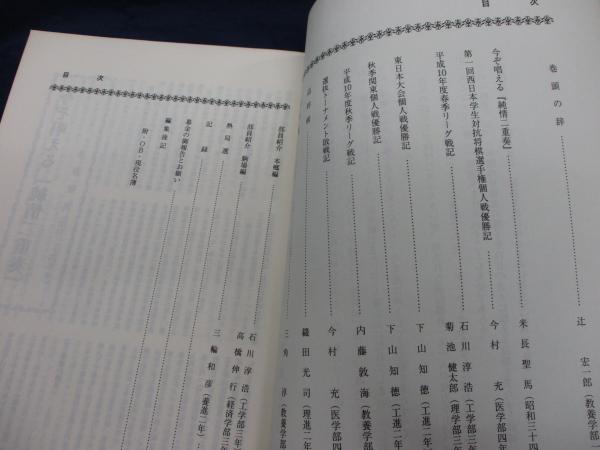 目　次
巻頭の辞………辻　宏一郎（教養学部
今ぞ唱える『純情二重奏』………米長聖馬（昭和三十四
第一回西日本学生対抗将棋選手権個人戦優勝記………今村　充（医学部四年
平成10年度春季リーグ戦記………石川淳浩（工学部三年
菊池健太郎（理学部三年
東日本大会個人戦優勝記………下山知徳（工進二年
秋季関東個人戦優勝記………下山知徳（工進二年
平成10年度秋季リーグ戦記………内藤敦海（教養学部
選抜トーナメント敗戦記………今村　充（医学部
織田光司（理進二年
三角　淳（教養学部
目　次
部員紹介　本郷編
部員紹介　駒場編………石川淳浩（工学部三年
高橋伸行（経済学部三年
熱局選………三輪和彦（養進二年）
記録
基金の御報告とお願い
編集後記
附・OB・現役名簿